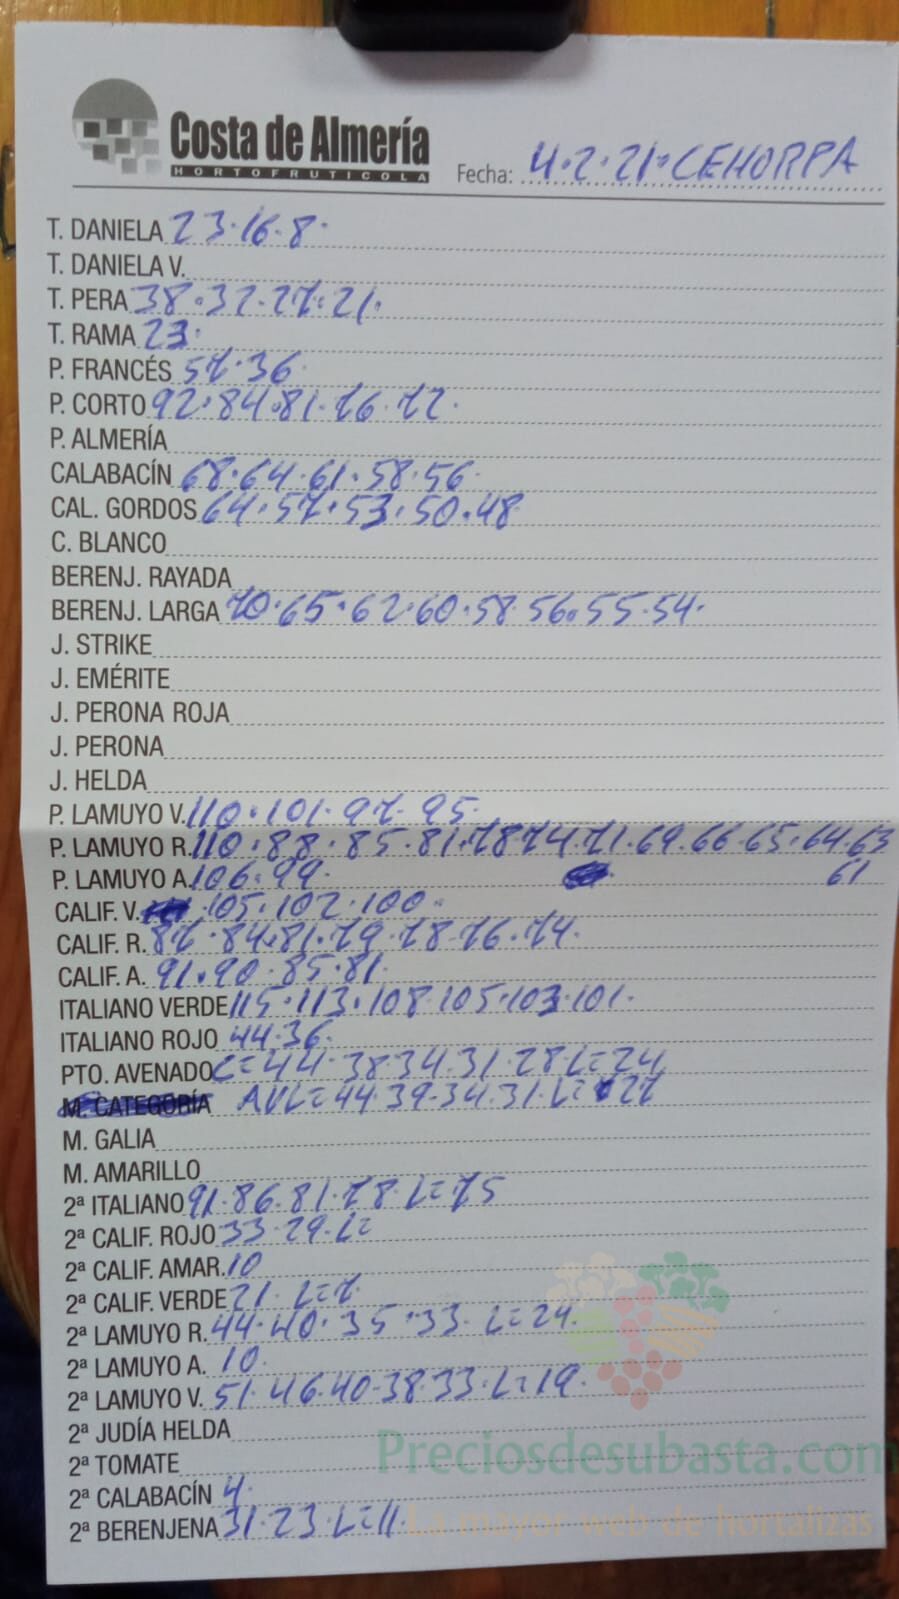 Costa de Almería
HORTOFRUTICOLA
Fecha: 4.2.21=CEHORPA
T. DANIELA 23.16.8.
T. DANIELA V.
T. PERA 38.32.27.21.
T. RAMA 23.
P. FRANCÉS 57.36.
P. CORTO 92.84.81.76.72.
P. ALMERÍA
CALABACÍN 68.64.61.58.56.
CAL. GORDOS 64.57.53.50.48
C. BLANCO
BERENJ. RAYADA
BERENJ. LARGA 70.65.62.60.58.56.55.54.
J. STRIKE
J. EMÉRITE
J. PERONA ROJA
J. PERONA
J. HELDA
P. LAMUYO V. 110.101.97.95.
P. LAMUYO R. 110.88.85.81.78.74.71.69.66.65.64.63
P. LAMUYO A. 106.99. 61
CALIF. V. 105.102.100.
CALIF. R. 87.84.81.79.78.76.74.
CALIF. A. 91.90.85.81.
ITALIANO VERDE 115.113.108.105.103.101.
ITALIANO ROJO 44.36.
PTO. AVENADO C=44.38.34.31.28.L=24
M. CATEGORÍA AVL=44.39.34.31.L=27
M. GALIA
M. AMARILLO
2ª ITALIANO 91.86.81.78.L=75
2ª CALIF. ROJO 33.29.L=
2ª CALIF. AMAR. 10
2ª CALIF. VERDE 21. L=7
2ª LAMUYO R. 44.40.35.33.L=24.
2ª LAMUYO A. 10.
2ª LAMUYO V. 51.46.40.38.33.L=19.
2ª JUDÍA HELDA
2ª TOMATE
Preciosdesubasta.com
2ª CALABACÍN 4.
2ª BERENJENA 31.23.L=11.
La mayor web de hortalizas